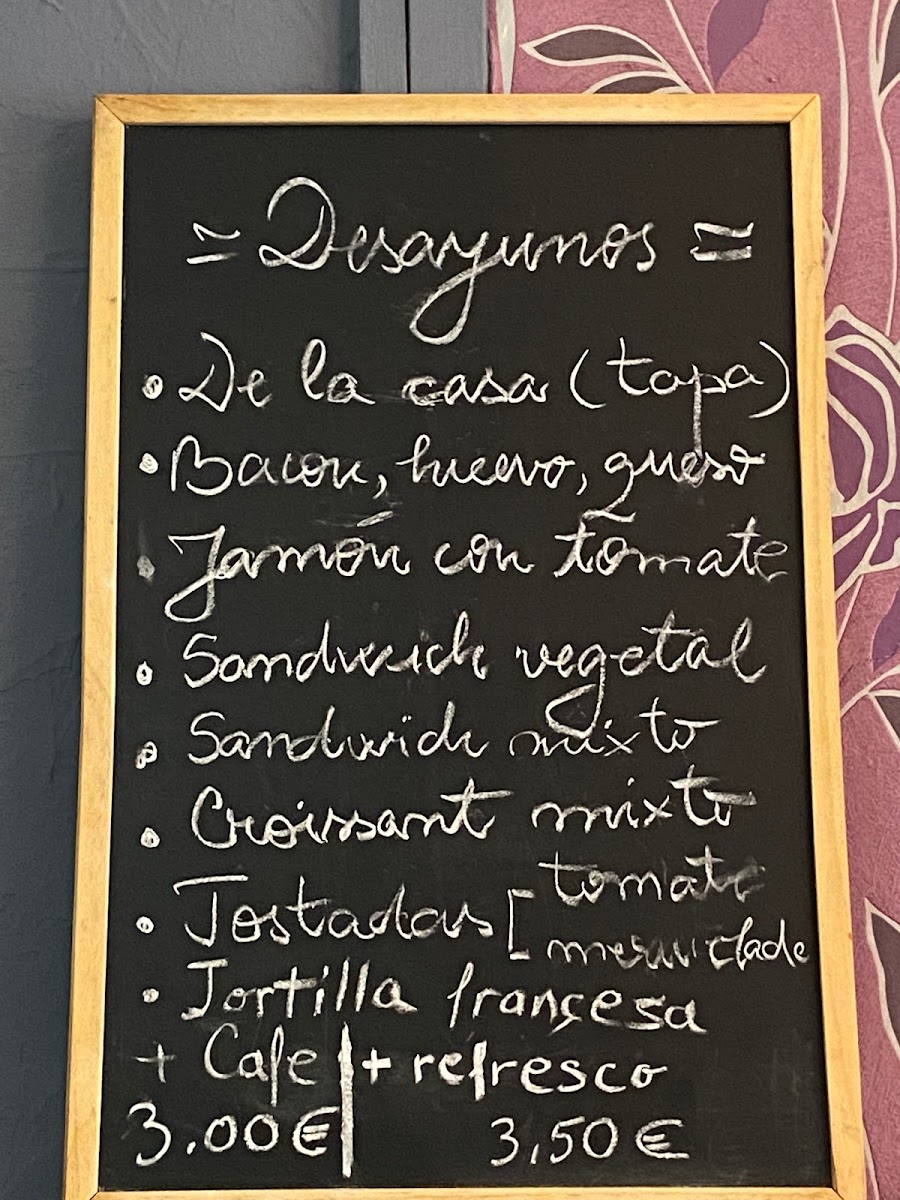 = Desayunos =
• De la casa (tapa)
• Bacon, huevo, queso
• Jamón con tomate
• Sandwich vegetal
• Sandwich mixto
• Croissant mixto
• Tostadas [ tomate
mermelade
• Tortilla francesa
+ Cafe | + refresco
3.00€ | 3,50€